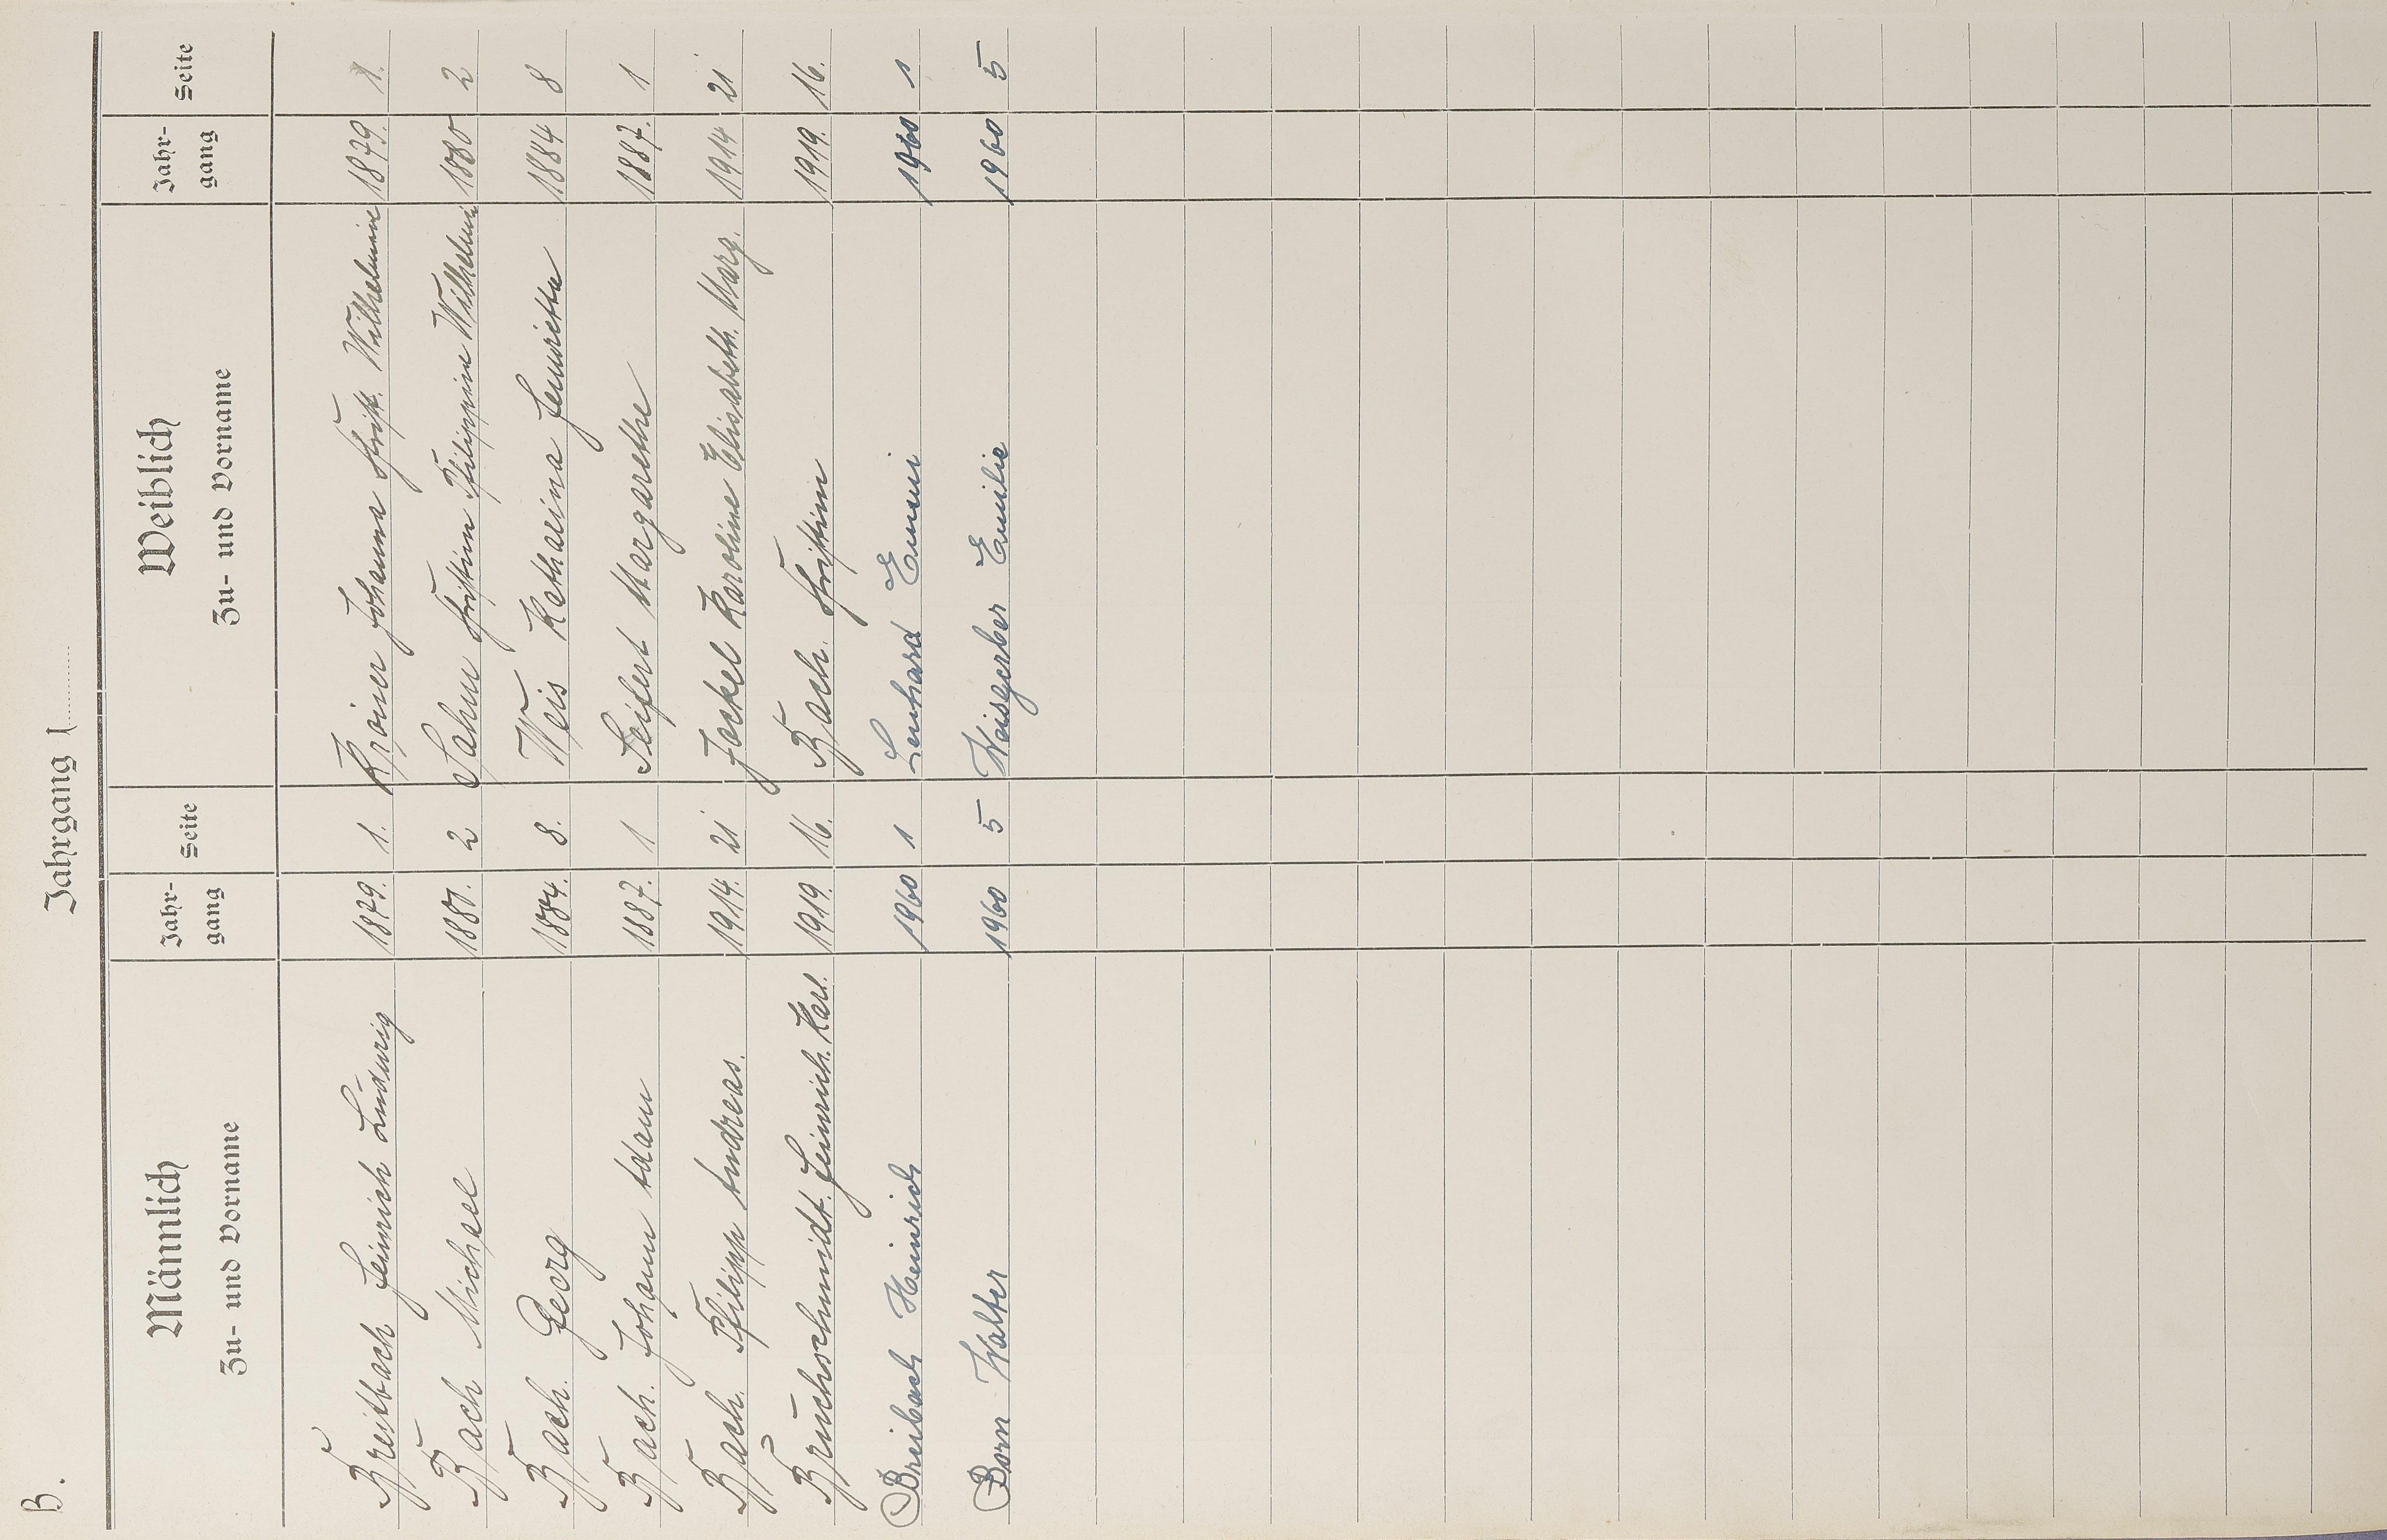 B.
Jahrgang 1
Männlich Jahr- Seite Weiblich Jahr- Seite
Zu- und Vorname gang Zu- und Vorname gang
Breitbach Heinrich Ludwig 1879. 1. Johanna Christ. Wilhelmine 1879. 1.
Bach Michael 2 Sahm Christine Philippine Wilhelmine 1880 2
Bach. Georg 1884. 8. Weis Katharina Henriette 1884 8
Bach. Johann Adam 1887. 1 Seifert Margarethe 1887. 1
Bach. Philipp Andreas. 1914. 21 Jäckel Karoline Elisabeth. Marg. 1914 21
Bruchschmidt. Heinrich. Karl. 1919. 16. Bach. Christine 1919. 16.
Breibach Heinrich 1960 1 Lenhard Emmi 1960 1
Born Walter 1960 5 Weisgerber Emilie 1960 5